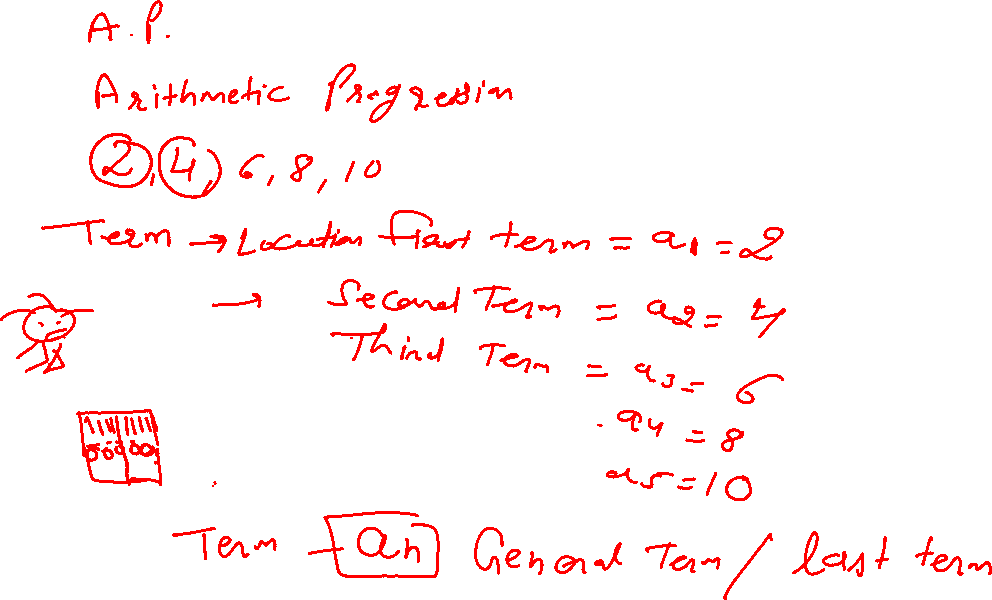 A.P.
Arithmetic Progression
2, 4, 6, 8, 10
Term → Location First term = a1 = 2
→ Second Term = a2 = 4
Third Term = a3 = 6
a4 = 8
a5 = 10
Term - an General Term / last term